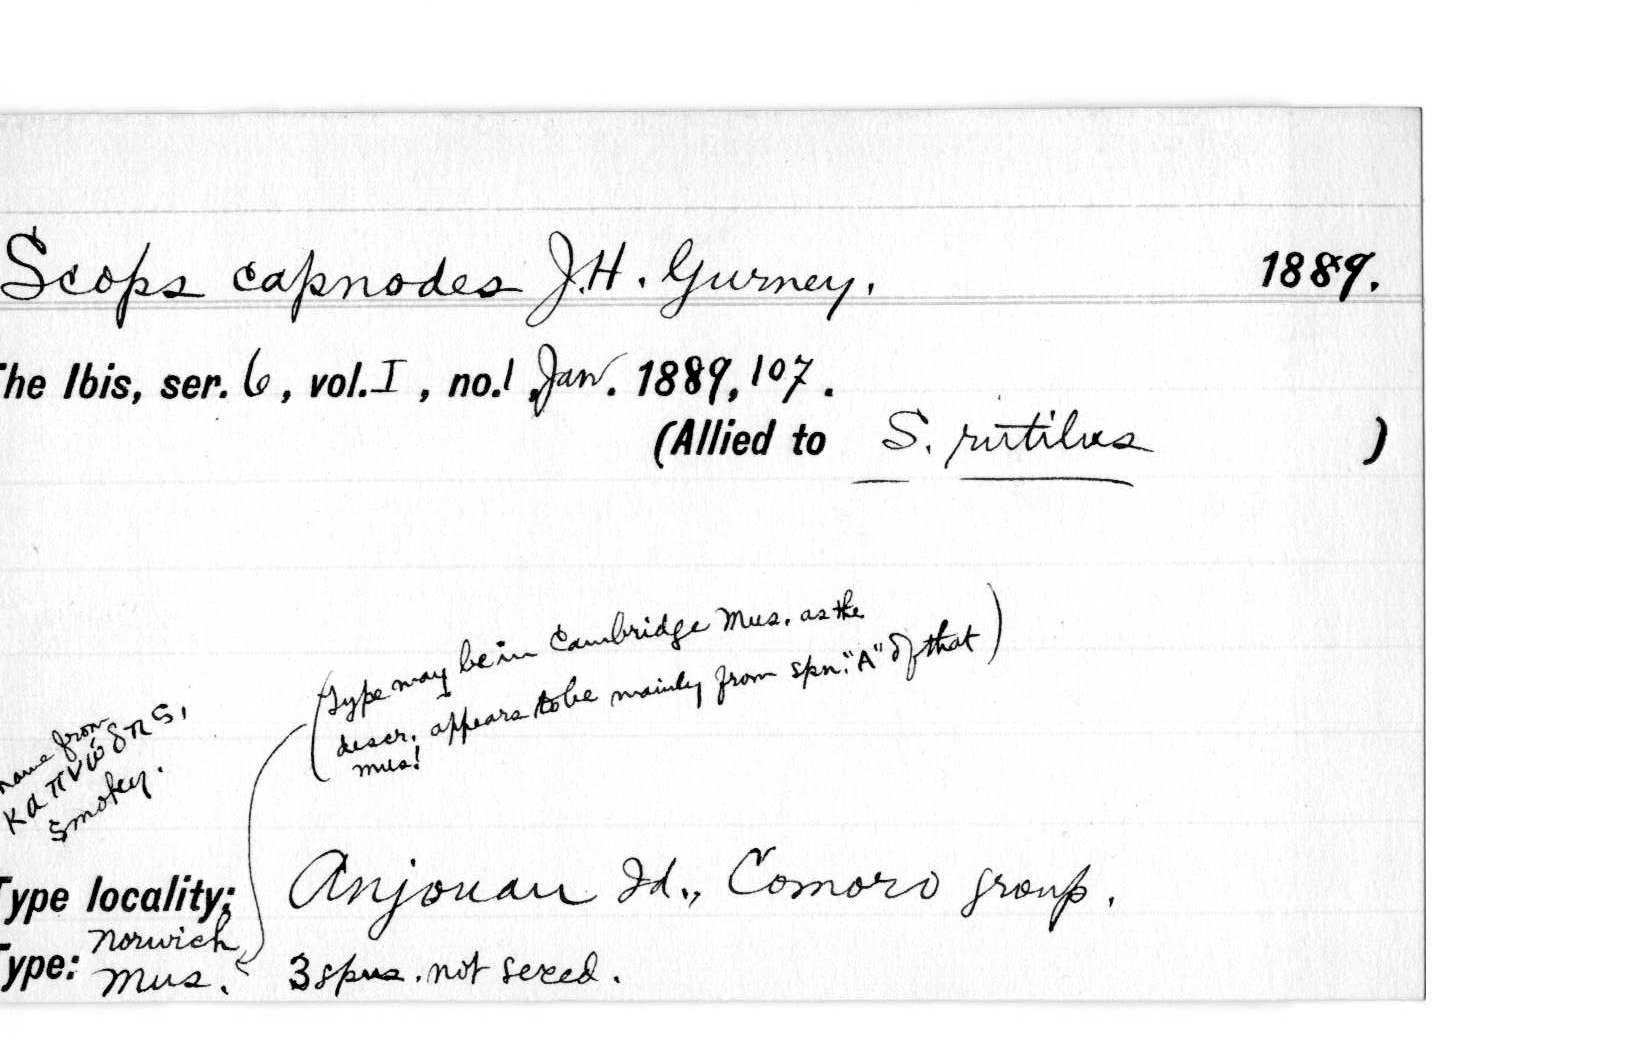 Scops capnodes J.H. Gurney. 1889.
The Ibis, ser. 6, vol. I, no. 1, Jan. 1889, 107.
(Allied to S. rutilus )
(Type may be in Cambridge Mus. as the
descr. appears to be mainly from spn. "A" of that
mus!)
name from
καπνώδης,
smokey.
Type locality: Anjouan Id., Comoro group.
Type: Norwich
Mus. 3 spns. not sexed.